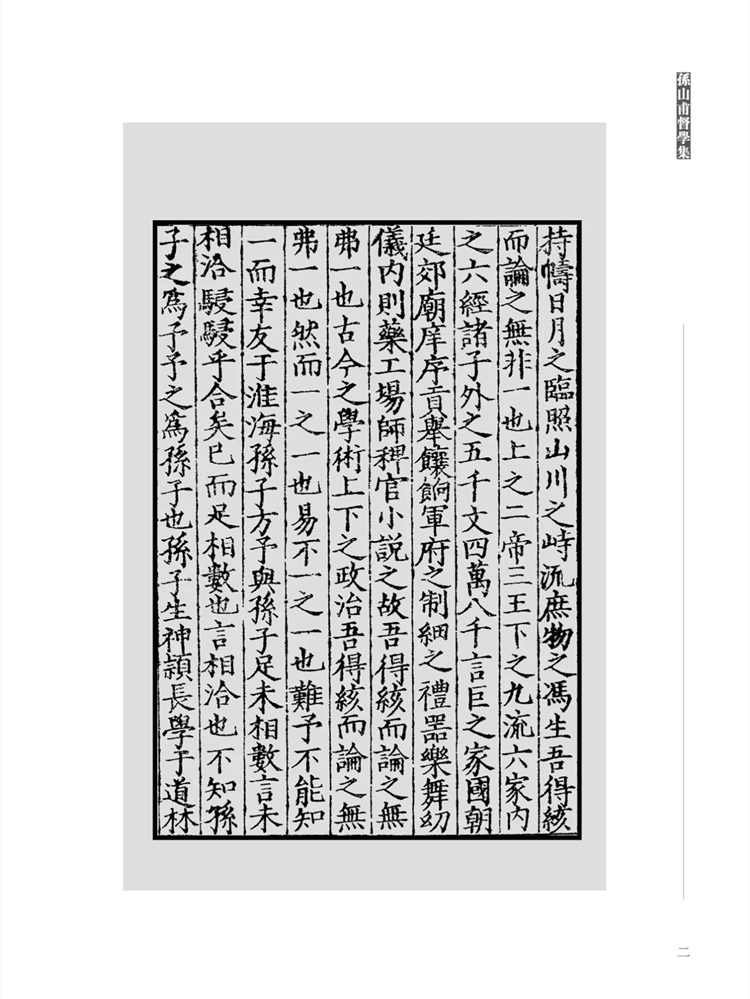 孫山甫督學集
持幬日月之臨照山川之峙流庶物之馮生吾得絯
而論之無非一也上之二帝三王下之九流六家內
之六經諸子外之五千文四萬八千言巨之家國朝
廷郊廟庠序貢舉饟餉軍府之制細之禮器樂舞幼
儀內則藥工場師稗官小說之故吾得絯而論之無
弗一也古今之學術上下之政治吾得絯而論之無
弗一也然而一之一也易不一之一也難予不能知
一而幸友于淮海孫子方予與孫子足未相數言未
相洽駸駸乎合矣已而足相數也言相洽也不知孫
子之爲予予之爲孫子也孫子生神頴長學于道林
二